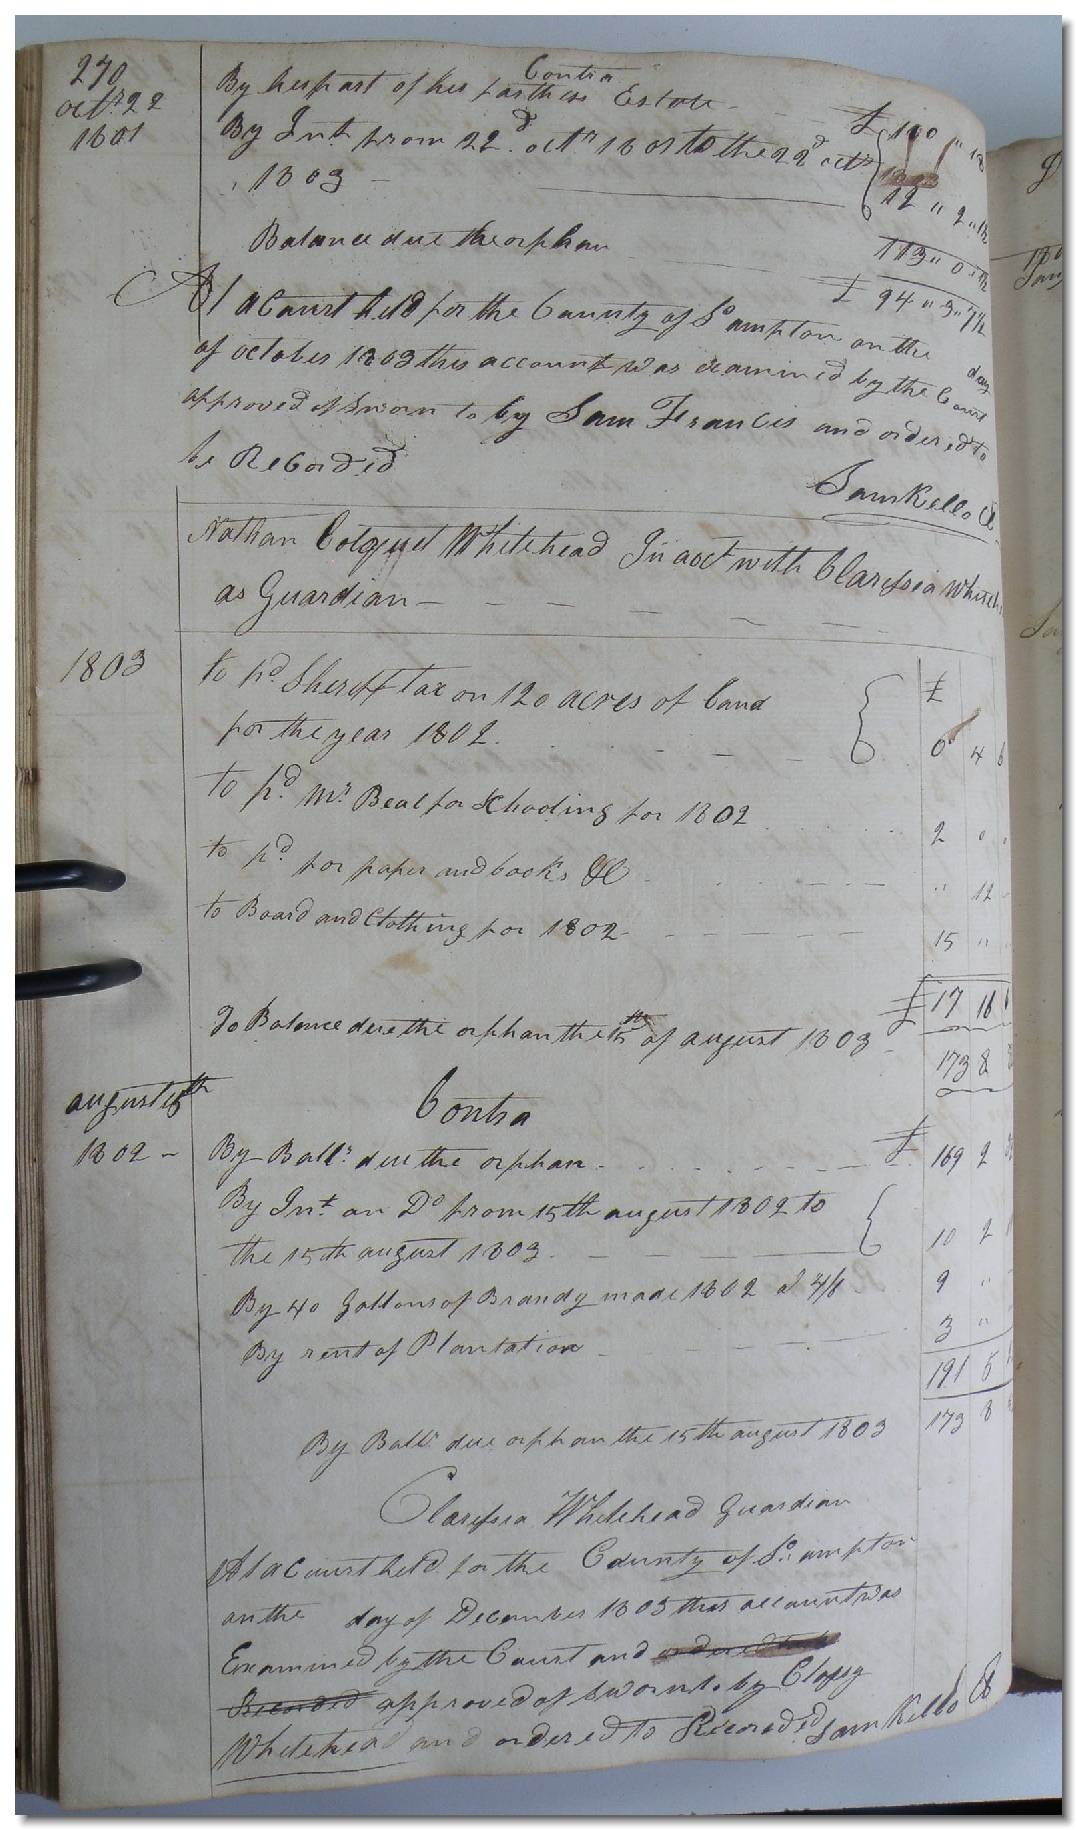 270
Contra
octr 22 By her part of her farthers Estate - £ 100 " 18
1801
By Int from 22d. octr 1801 to the 22d octr
1803 - 12 " 2 "
113 " 0 "
Balance due the orphan £ 94 " 3 " 7½
At a Court held for the County of So ampton on the day
of october 1803 this account was examined by the Court
approved of Sworn to by Sam Francis and ordered to
be Recorded
Sam Kello Cl
Nathan Whitehead In acct with Claressia Whiteh
as Guardian -
1803 to pd Sheriff tax on 120 acres of land £
for the year 1802. 0 4 6
to pd. Mr Beal for Schooling for 1802 2 " "
to pd for paper and books &C " 12 -
to Board and Clothing for 1802 - 15 " "
£ 17 16
To Balance due the orphan the 15th of august 1803 173 8
august 15th
Contra
1802 - By Balle. due the orphan - £ 169 2
By Int on Do from 15th august 1802 to
the 15th august 1803 - 10 2
By 40 Gallons of Brandy made 1802 a 4/6 9 "
By rent of Plantation - 3 "
191 5
By Balle due orphan the 15th august 1803 173 8
Claressia Whitehead Guardian
At a Court held for the County of So ampton
on the day of December 1803 this account was
Examined by the Court and ordered to be
Recorded approved of Sworn to by Clary
Whitehead and ordered to Recorded Sam Kello Cl